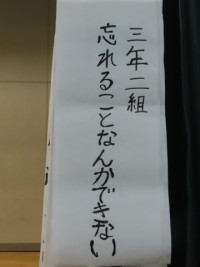 三年二組
忘れることなんかできない